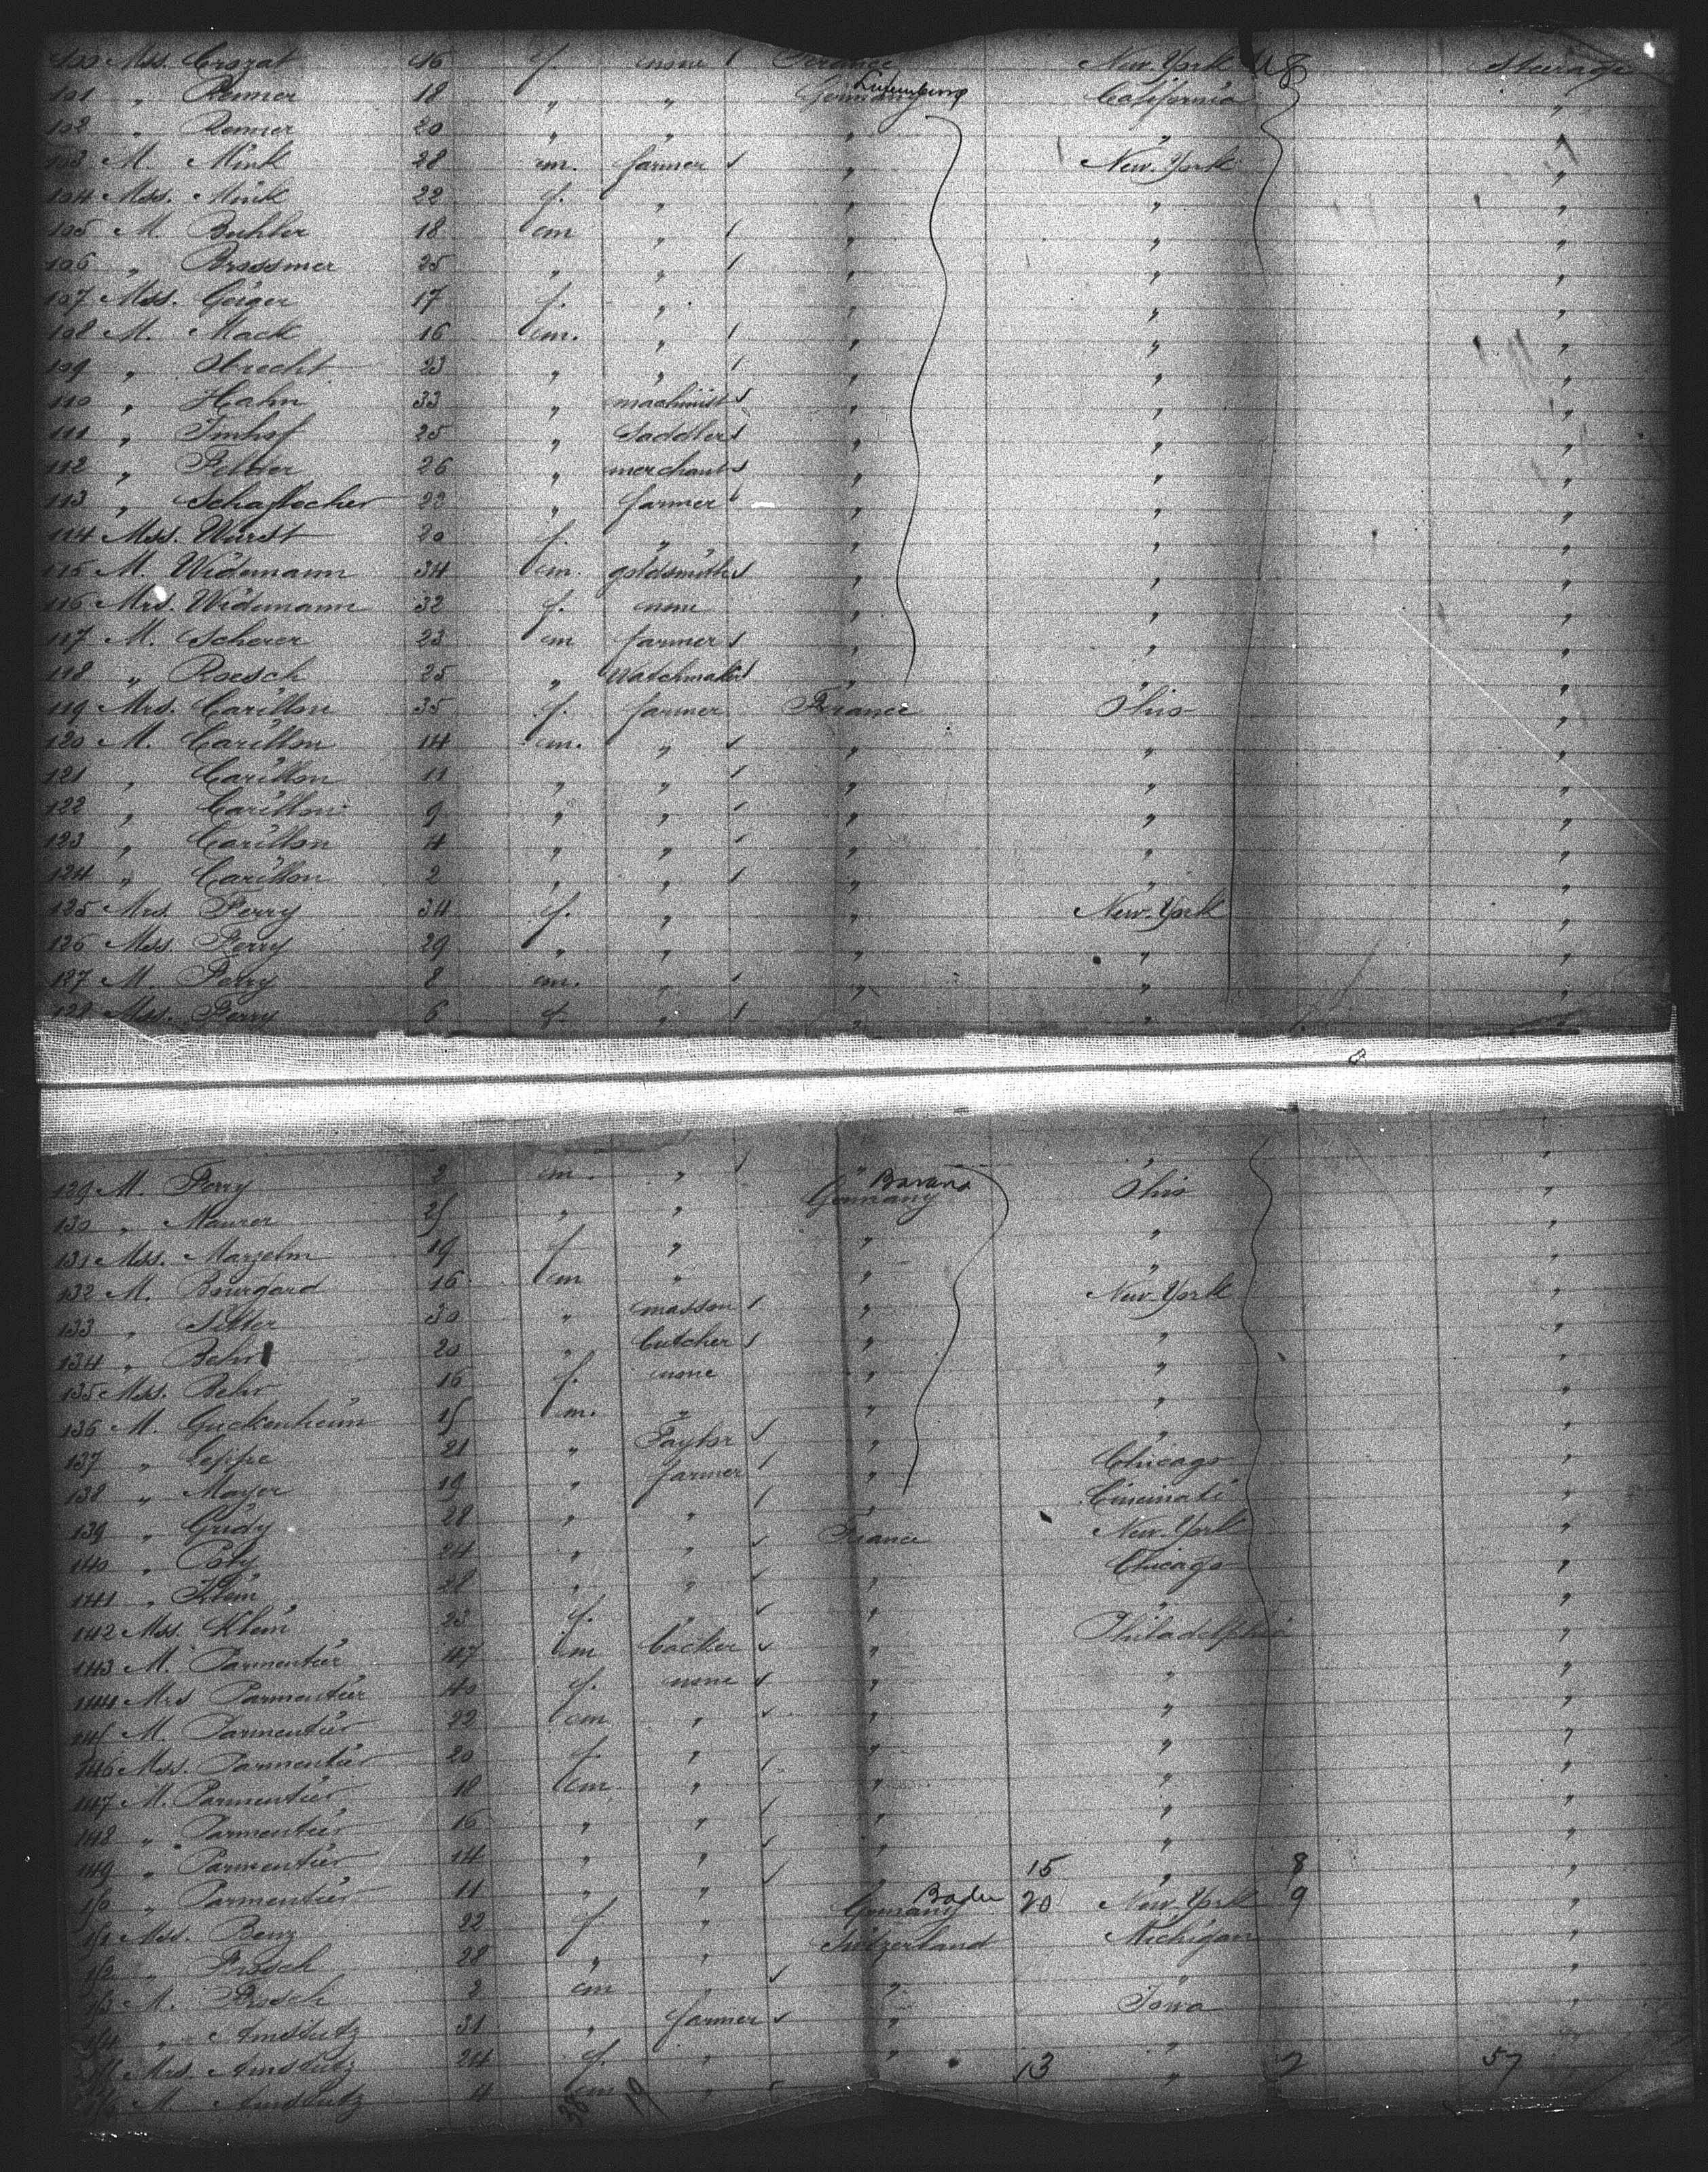 100 Mss. Crozat 46 f. none France New York U 8 Steerage
101 " Renner 18 " " Germany Luxemburg California "
102 " Renner 20 " " " " "
103 M. Mink 28 m. farmer " New York "
104 Mss. Mink 22 f. " " " "
105 M. Buhler 18 m " " " "
106 " Brossmer 25 " " " " "
107 Mss. Geiger 17 f. " " " "
108 M. Mack 16 m. " " " "
109 " Obrecht 23 " " " " "
110 " Hahn 33 " machinist " " "
111 " Imhof 25 " Saddler " " "
112 " 26 " merchant " " "
113 " Schaflocher 22 " farmer " " "
114 Mss. Wurst 20 f. " " " "
115 M. Widemann 34 m. goldsmith " " "
116 Mrs. Widemann 32 f. none " " "
117 M. Scherer 23 m farmer " " "
118 " Roesch 25 " Watchmaker " " "
119 Mrs. Carillon 35 f. farmer France Ohio "
120 M. Carillon 14 m. " " " "
121 " Carillon 11 " " " " "
122 " Carillon 9 " " " " "
123 " Carillon 4 " " " " "
124 " Carillon 2 " " " " "
125 Mrs. Perry 34 f. " " New York "
126 Mss. Perry 29 " " " " "
127 M. Perry 8 m. " " " "
128 Mss. Perry 6 f. " " "
129 M. Perry 2 m. " " " "
130 " Maurer 25 " " Germany Bavaria Ohio "
131 Mss. Marzelm 19 f " " " "
132 M. Bourgard 16 m " " " "
133 " Sitter 30 " masson " New York "
134 " Behr 20 " butcher " " "
135 Mss. Behr 16 f. none " " "
136 M. Guckenheim 15 m. " " " "
137 " Leppe 21 " Taylor " " "
138 " Mayer 19 " farmer " Chicago "
139 " Gridy 28 " " " Cincinati "
140 " Poly 24 " " France New York "
141 " Klein 28 " " " Chicago "
142 Mss. Klein 23 f. " " " "
143 M. Parmentier 47 m backer " Philadelphia "
144 Mrs Parmentier 40 f. none " " "
145 M. Parmentier 22 m " " " "
146 Mss. Parmentier 20 f. " " " "
147 M. Parmentier 18 m. " " " "
148 " Parmentier 16 " " " " "
149 " Parmentier 14 " " " " "
150 " Parmentier 11 " " " 15 " 8 "
151 Mss. Benz 22 f " Germany Baden 20 New York 9 "
152 " Prosch 28 " " Switzerland Michigan "
153 M. Prosch 2 m " " " "
154 " Amstutz 31 " farmer " Iowa "
155 Mrs. Amstutz 24 f. " " " "
156 M. Amstutz 4 m " 13 " 2 57
38 19